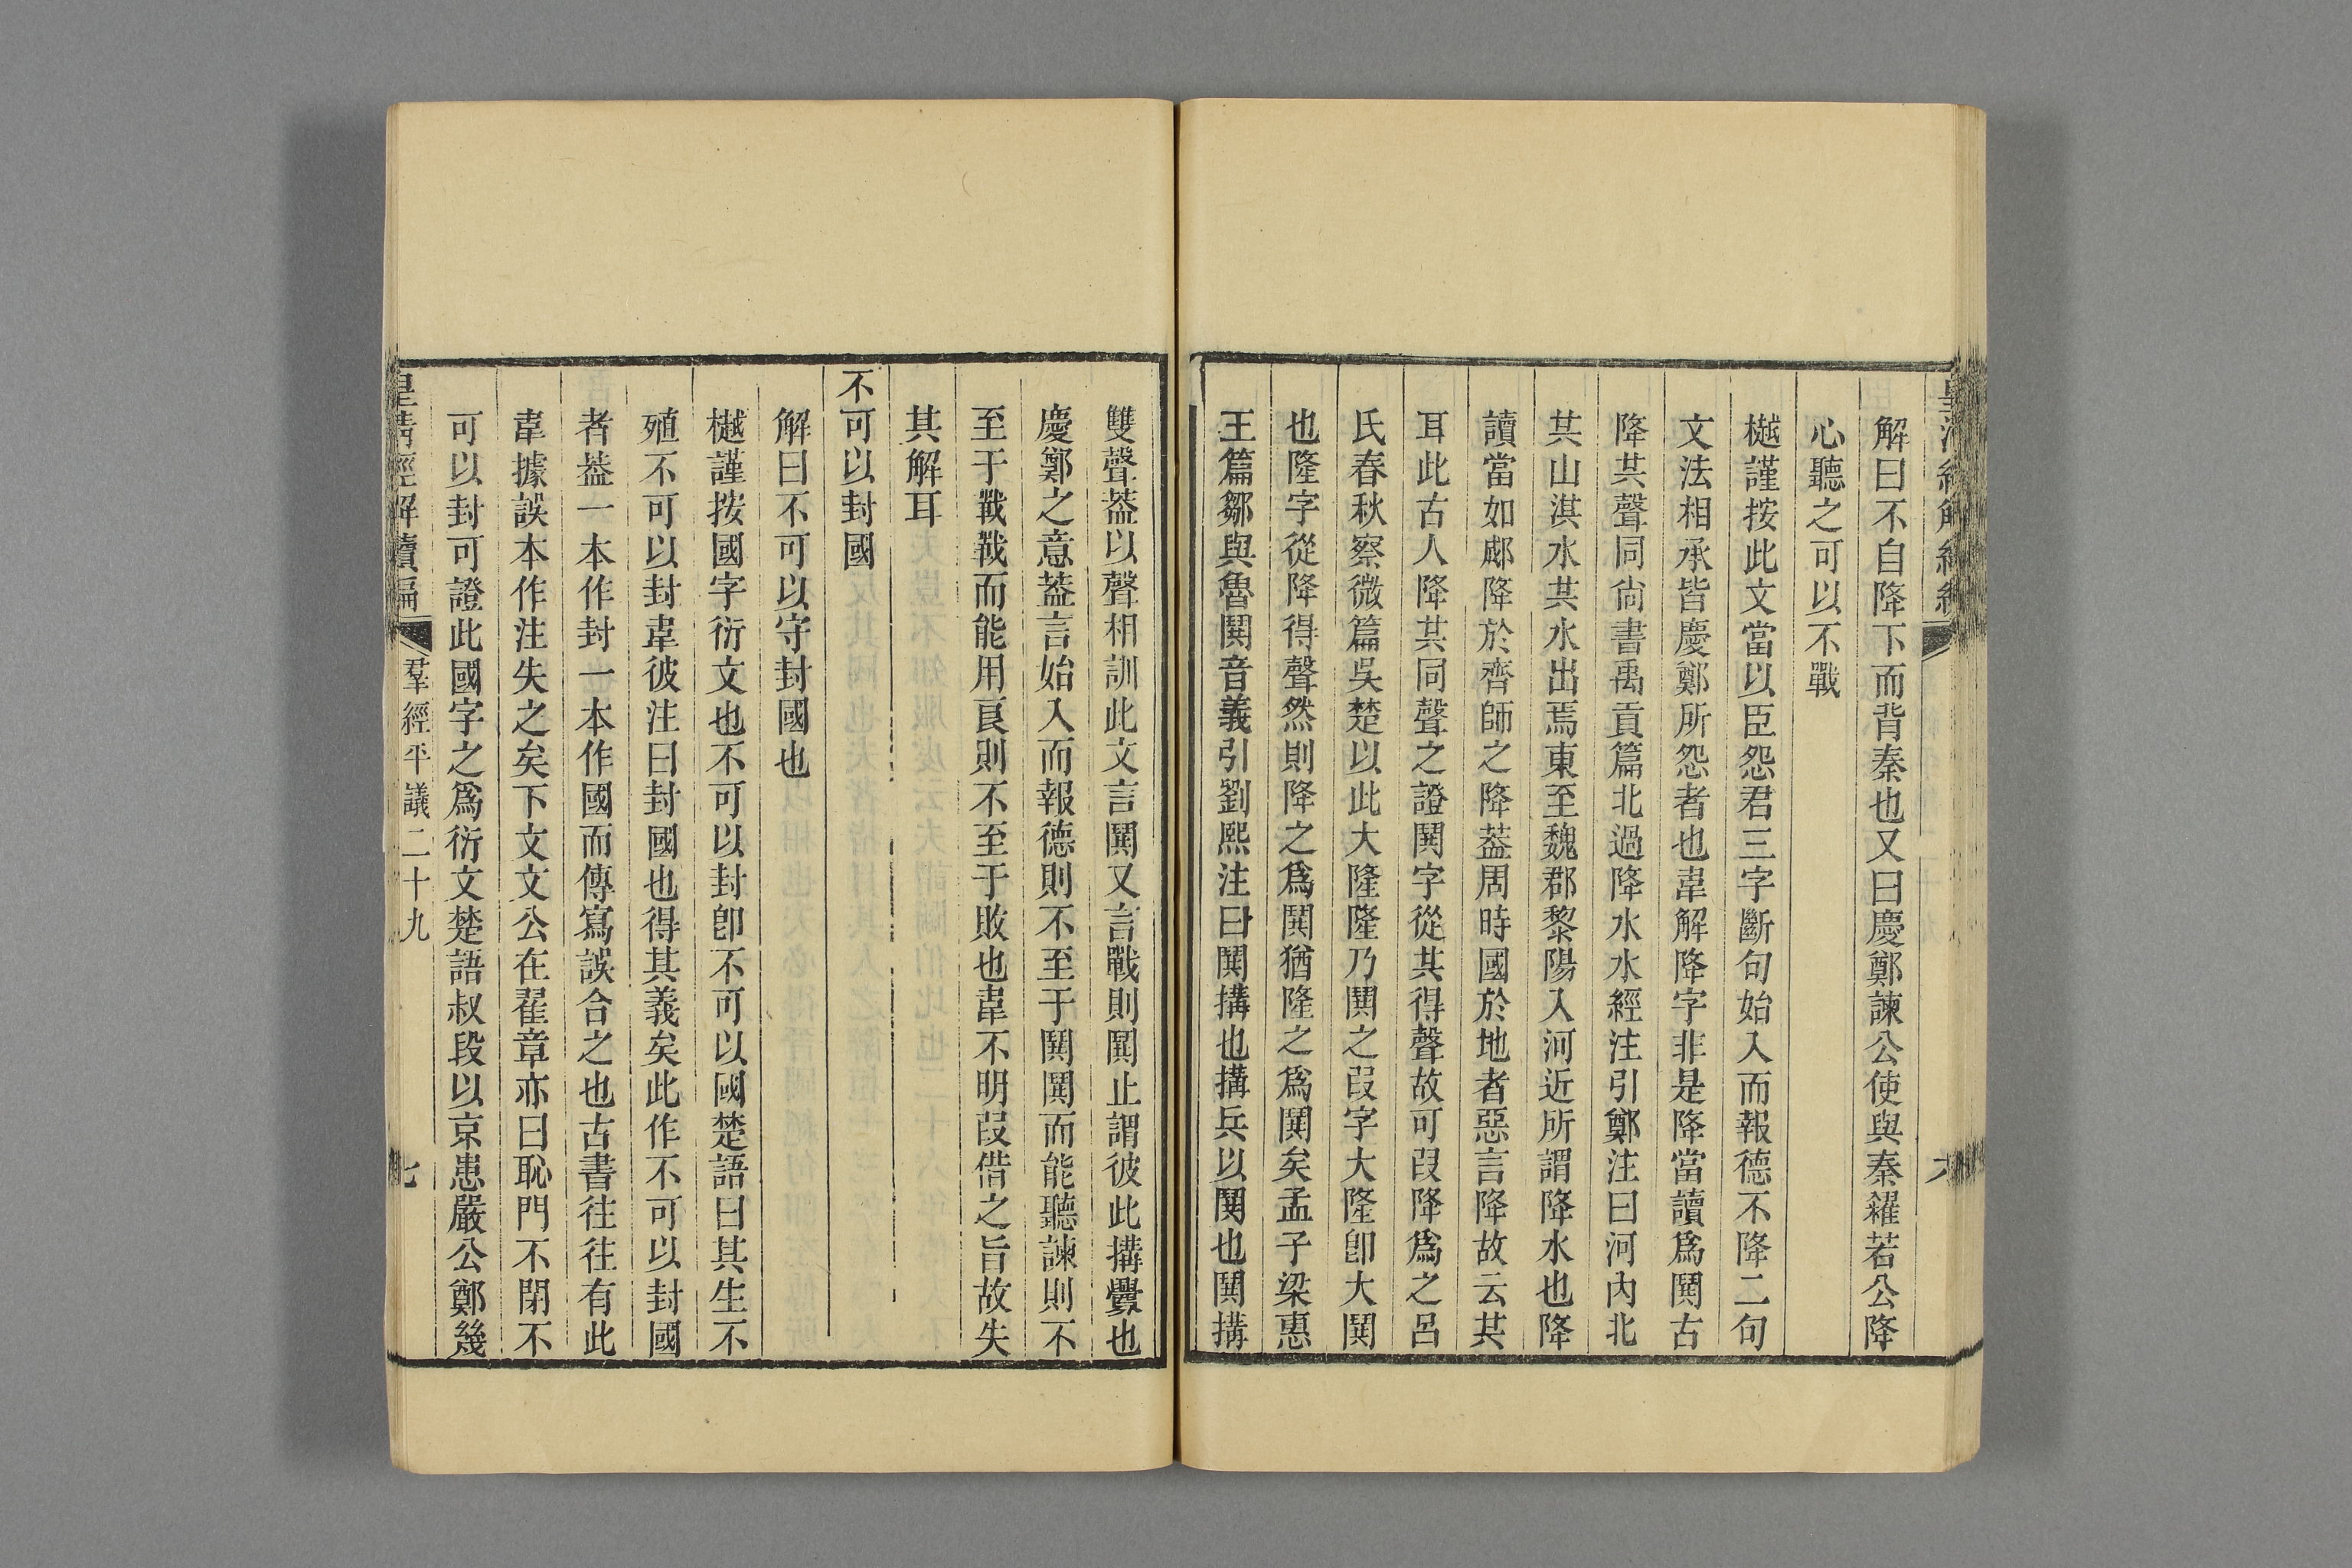 解曰不自降下而背秦也又曰慶鄭諫公使與秦糴若公降
心聽之可以不戰
樾謹按此文當以臣怨君三字斷句始入而報德不降二句
文法相承皆慶鄭所怨者也韋解降字非是降當讀爲鬨古
降共聲同尙書禹貢篇北過降水水經注引鄭注曰河內北
共山淇水共水出焉東至魏郡黎陽入河近所謂降水也降
讀當如郕降於齊師之降葢周時國於地者惡言降故云共
耳此古人降共同聲之證鬨字從共得聲故可叚降爲之呂
氏春秋察微篇吳楚以此大隆隆乃鬨之叚字大隆卽大鬨
也隆字從降得聲然則降之爲鬨猶隆之爲鬨矣孟子梁惠
王篇鄒與魯鬨音義引劉熙注曰鬨搆也搆兵以鬨也鬨搆
雙聲葢以聲相訓此文言鬨又言戰則鬨止謂彼此搆釁也
慶鄭之意葢言始入而報德則不至于鬨鬨而能聽諫則不
至于戰戰而能用良則不至于敗也韋不明叚借之旨故失
其解耳
不可以封國
解曰不可以守封國也
樾謹按國字衍文也不可以封卽不可以國楚語曰其生不
殖不可以封韋彼注曰封國也得其義矣此作不可以封國
者葢一本作封一本作國而傳寫誤合之也古書往往有此
韋據誤本作注失之矣下文文公在翟章亦曰恥門不閉不
可以封可證此國字之爲衍文楚語叔段以京患嚴公鄭幾
皇淸經解續編
羣經平議二十九
七